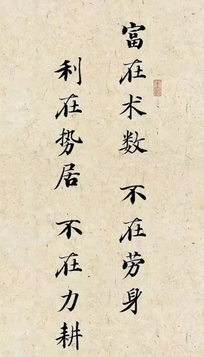 富在术数 不在劳身
利在势居 不在力耕